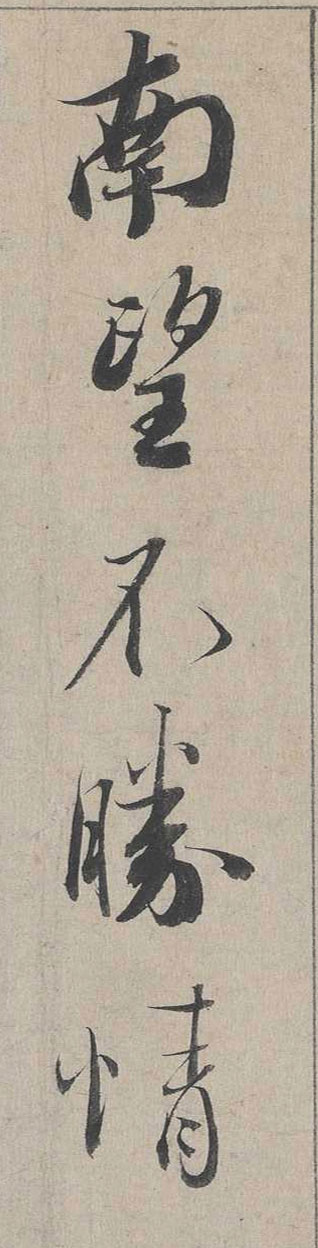 南望不勝情